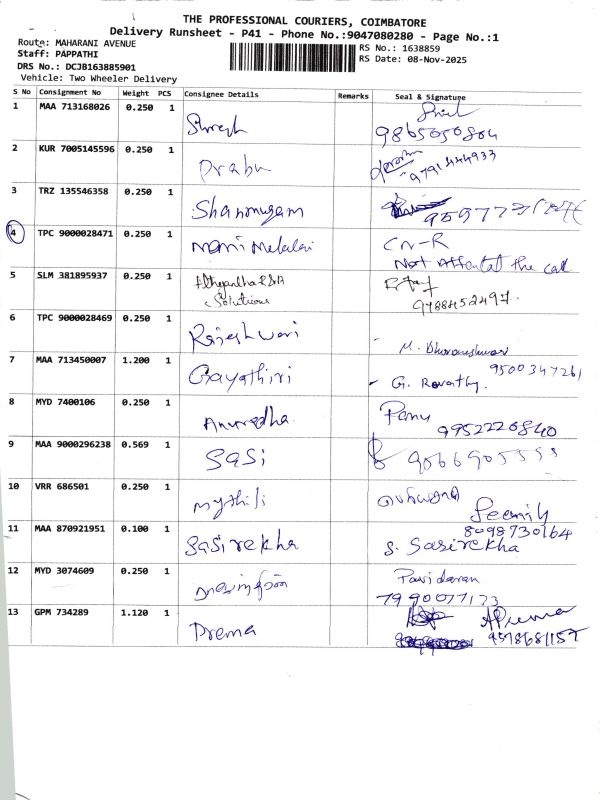 THE PROFESSIONAL COURIERS, COIMBATORE
Delivery Runsheet - P41 - Phone No.:9047080280 - Page No.:1
Route: MAHARANI AVENUE
Staff: PAPPATHI
DRS No.: DCJB163885901
Vehicle: Two Wheeler Delivery
RS No.: 1638859
RS Date: 08-Nov-2025
S No Consignment No Weight PCS Consignee Details Remarks Seal & Signature
1 MAA 713168026 0.250 1 Suresh 9865050804
2 KUR 7005145596 0.250 1 Prabu 9791444933
3 TRZ 135546358 0.250 1 Shanmugam
4 TPC 9000028471 0.250 1 CN-R
Not Attented the call
5 SLM 381895937 0.250 1
Solutions 9788452497
6 TPC 9000028469 0.250 1 Rajeshwari M. Bhuvaneshwari
7 MAA 713450007 1.200 1 Gayathiri G. Revathy. 9500347261
8 MYD 7400106 0.250 1 Anuradha. 9952220840
9 MAA 9000296238 0.569 1 Sasi
10 VRR 686501 0.250 1 Mythili
11 MAA 870921951 0.100 1 Sasirekha 8098730164
S. Sasirekha
12 MYD 3074609 0.250 1 Pavidaran
7990077173
13 GPM 734289 1.120 1 Prema APrema
9578681157